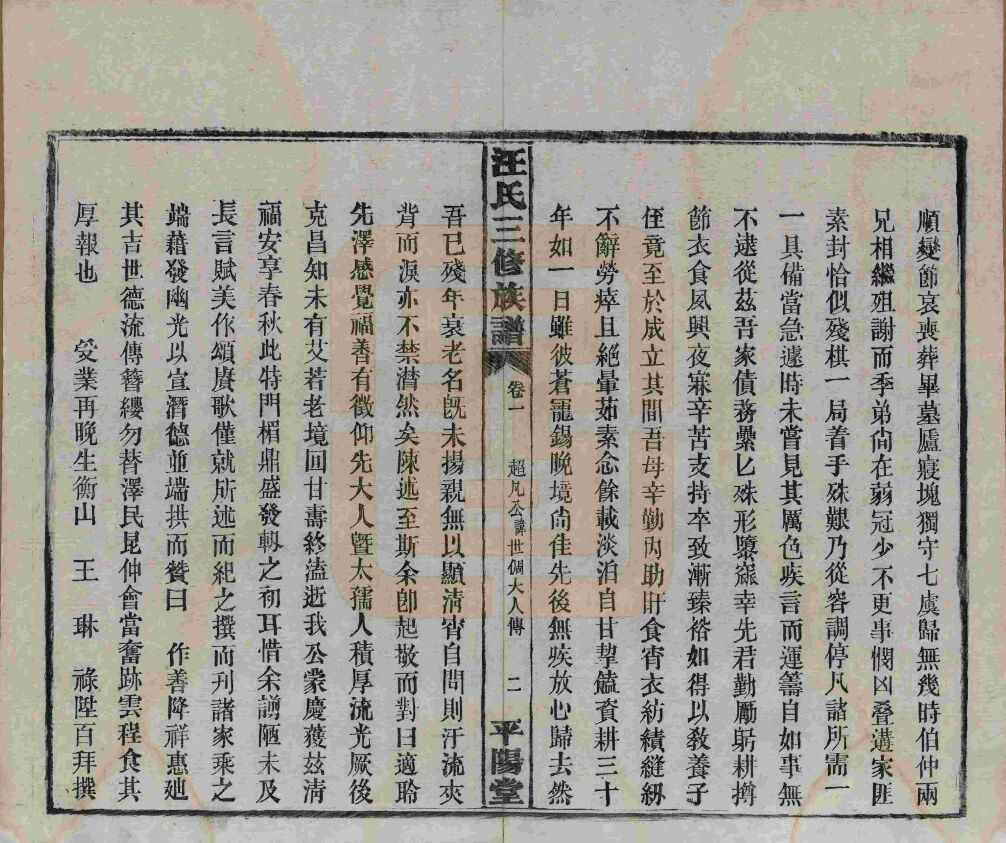 順變節哀喪葬畢墓廬寢塊獨守七虞歸無幾時伯仲兩
兄相繼殂謝而季弟尙在蒻冠少不更事憫凶叠遘家匪
素封恰似殘棋一局着手殊艱乃從容調停凡諸所需一
一具備當急遽時未嘗見其厲色疾言而運籌自如事無
不逮從茲吾家債務纍匕殊形隳窳幸先君勤勵躬耕撙
節衣食夙興夜寐辛苦支持卒致漸臻裕如得以敎養子
侄竟至於成立其間吾母辛勤內助旰食宵衣紡績縫紉
不辭勞瘁且絕暈茹素念餘載淡泊自甘挚饁資耕三十
年如一日雖彼蒼寵錫晚境尙佳先後無疾放心歸去然
汪氏三修族譜
卷一
超凡公諱世倜大人傳
二
平陽堂
吾已殘年衰老名旣未揚親無以顯淸宵自問則汙流夾
背而淚亦不禁潸然矣陳述至斯余卽起敬而對曰適聆
先澤感覺福善有徵仰先大人曁太孺人積厚流光厥後
克昌知未有艾若老境回甘壽終溘逝我公蒙慶獲茲淸
福安享春秋此特門楣鼎盛發軔之初耳惜余謭陋未及
長言賦美作頌賡歌僅就所述而紀之撰而刊諸家乘之
端藉發幽光以宣潛德並端拱而贊曰　作善降祥惠廸
其吉世德流傳簪纓勿替澤民昆仲會當奮跡雲程食其
厚報也　受業再晚生衡山　王　琳　祿陞百拜撰